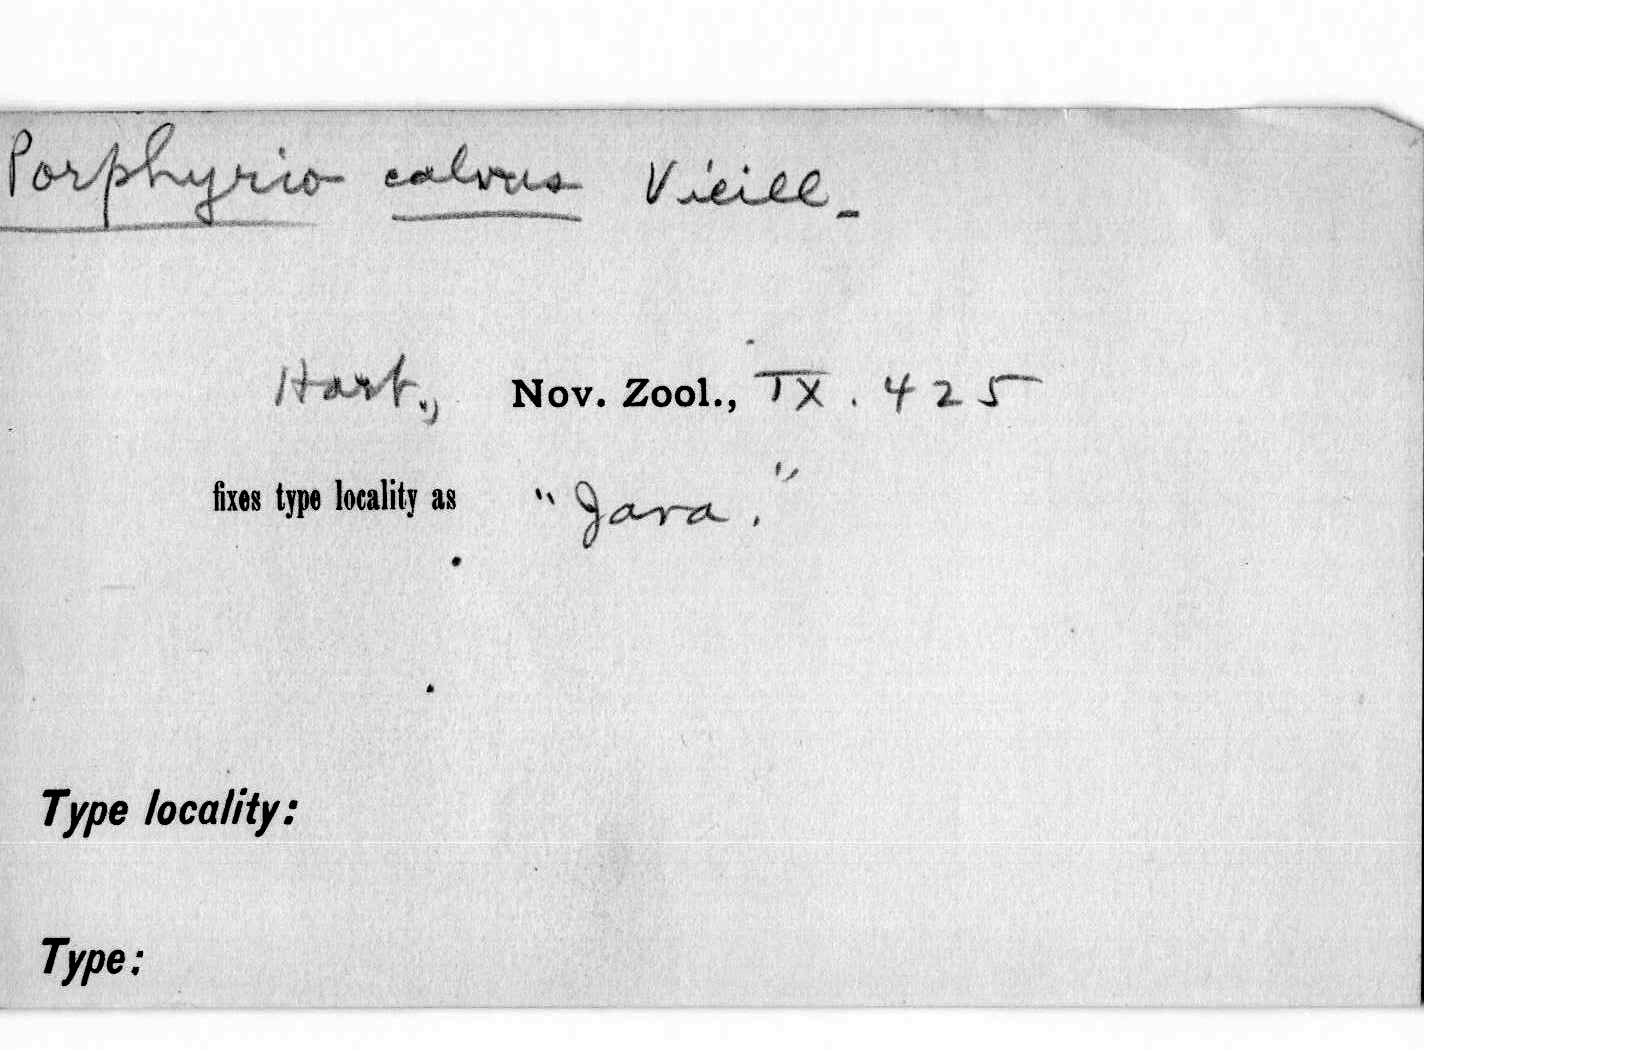 Porphyrio calvus Vieill.
Hart., Nov. Zool., IX. 425
fixes type locality as "Java."
Type locality:
Type: